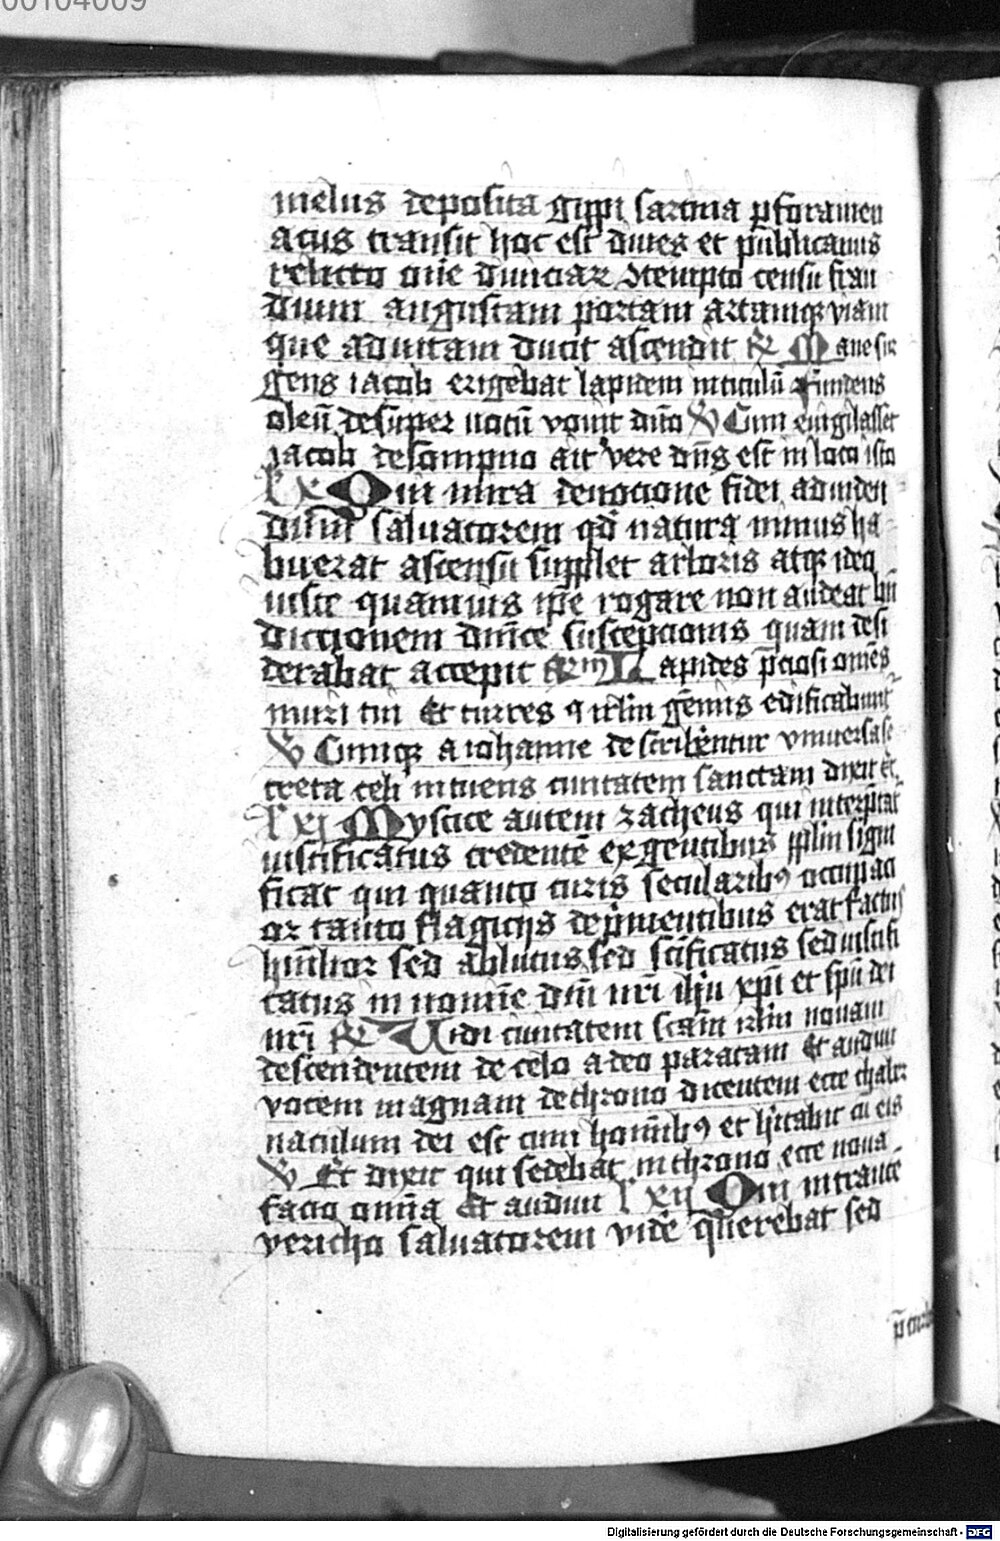 00104009
melus deposita gippi sarcina p foramen
acus transit hoc est diues et publicanus
relicto onē diuiciaꝝ ↄtempto censu frau
dium augustam portam artamqꝫ viam
que ad vitam ducit ascendit ℟ Mane sur
gens iacob erigebat lapidem in titulū fundens
oleū desuper uotū vouit dn̄o ℣ Cum euigilasset
iacob de sompno ait vere dn̄s est in loco isto
Qui mira deuocione fidei ad uiden
dum saluatorem qd natura minus ha
buerat ascensu supplet arboris atqꝫ ideo
iuste quamuis ip̄e rogare non audeat bn̄
dictionem dn̄ice suscepcionis quam desi
derabat accepit Lapides p̄ciosi om̄es
muri tui Et turres ihrl̄m gēmis edificabunt
℣ Cumqꝫ a iohanne describentur vniuersa se
creta celi intuens ciuitatem sanctam dixit
l'xj Mystice autem zacheus qui interp̄tat
iustificatus credentē ex gentibus ppl̄m signi
ficat qui quanto curis secularibꝯ occupaci
or tanto flagicijs dep̄mentibus erat factus
humilior sed ablutus sed sc̄ificatus sed iustifi
catus in nomīe dn̄i nr̄i ih̄u xp̄i et sp̄u dei
nr̄i ℟ Uidi ciuitatem sc̄am ihrl̄m nouam
descendentem de celo a deo paratam Et audiui
vocem magnam de throno dicentem ecce thaber
naculum dei est cum homībꝯ et h̄itabit cū eis
℣ Et dixit qui sedebat in throno ecce noua
facio omīa Et audiui l'xij Qui in trancē
yericho saluatorem vidē querebat sed
p̄ turba
Digitalisierung gefördert durch die Deutsche Forschungsgemeinschaft - DFG